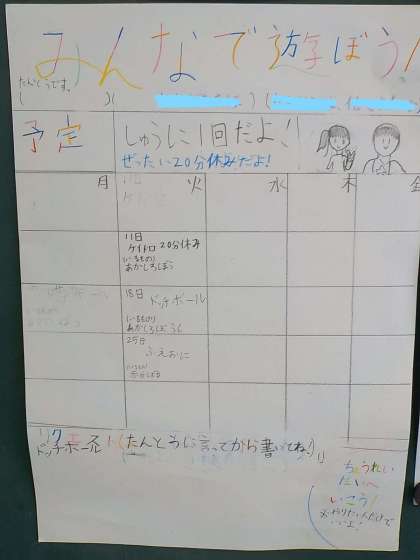 みんなで遊ぼう!
たんとうです。
( )( ) (
予定
しゅうに1回だよ!!
ぜったい20分休みだよ!
月 火 水 木 金
11日
ケイドロ 20分休み
いるもの
あかしろぼう
18日
ドッチボール
いるもの
あかしろぼうし
25日
ふえおに
リクエスト(たんとうに言ってから書いてね!)
ドッチボール
ちょうれい
だいへ
いこう!
※やりたい人だけで
いいよ!